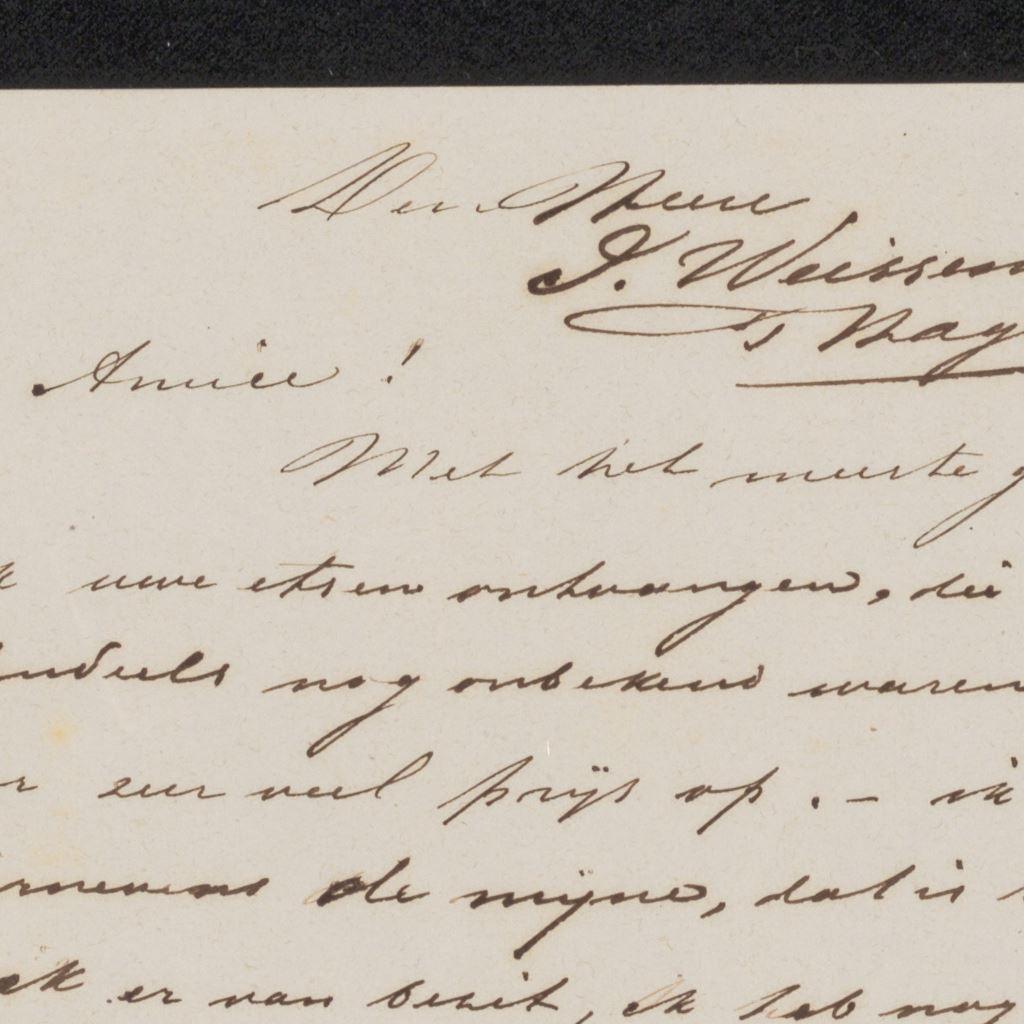 Den Heere
J. Weissen
's Hag
Amice!
Met het meeste g
k uwe etsen ontvangen, die
endeels nog onbekend waren
r zeer veel prijs op. - ik
rnevens de mijne, dat is
ek er van bezit, ik heb nog